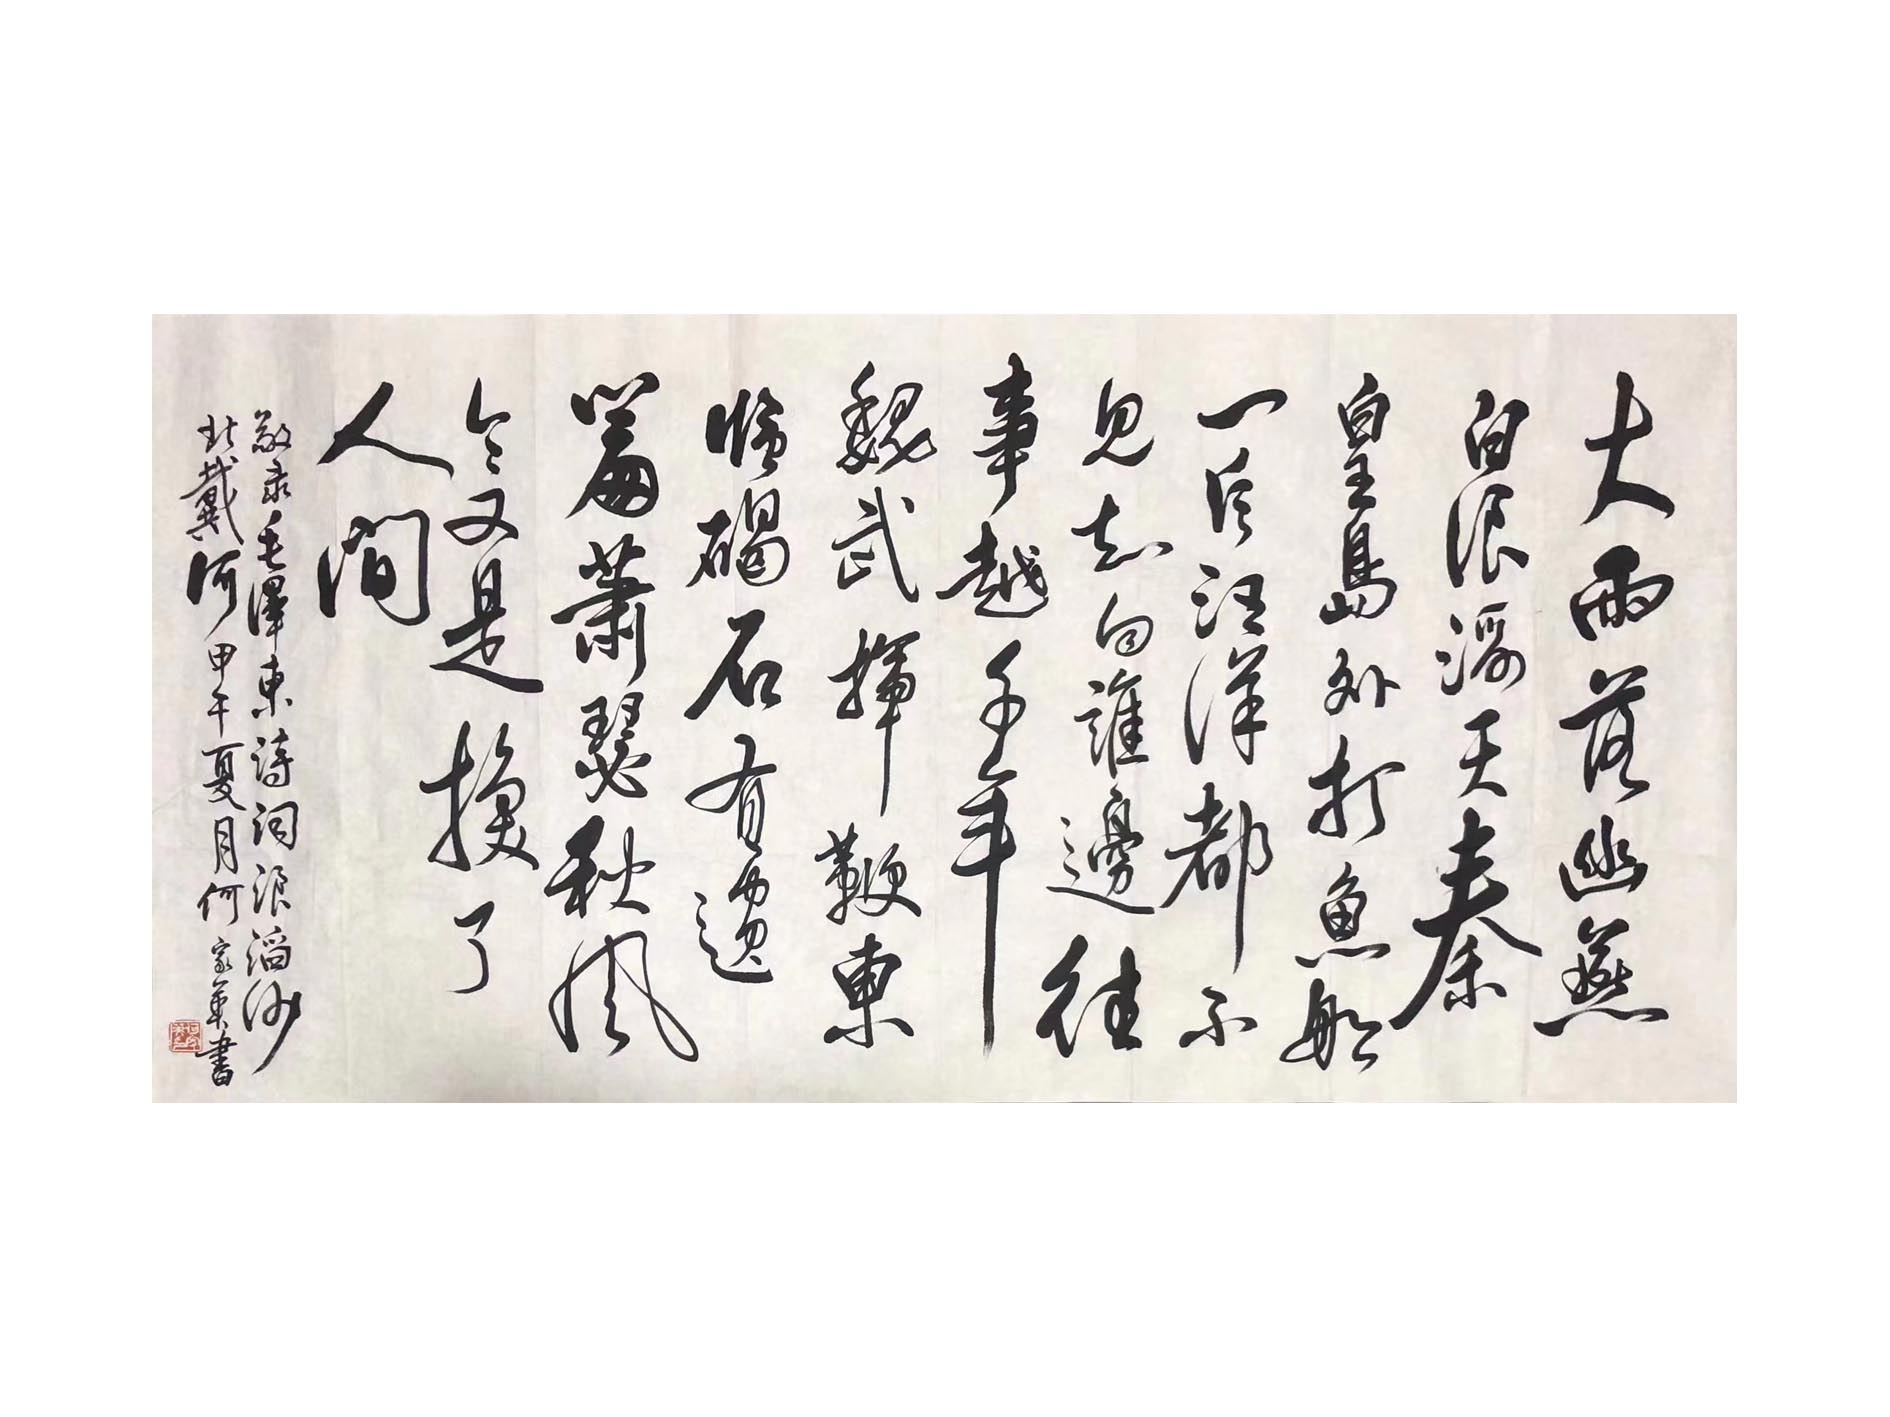 大雨落幽燕
白浪滔天秦
皇島外打魚船
一片汪洋都不
見知向誰邊往
事越千年
魏武揮鞭東
臨碣石有遺
篇蕭瑟秋風
今又是換了
人間
敬录毛澤東詩詞浪淘沙
北戴河甲午夏月何家 書